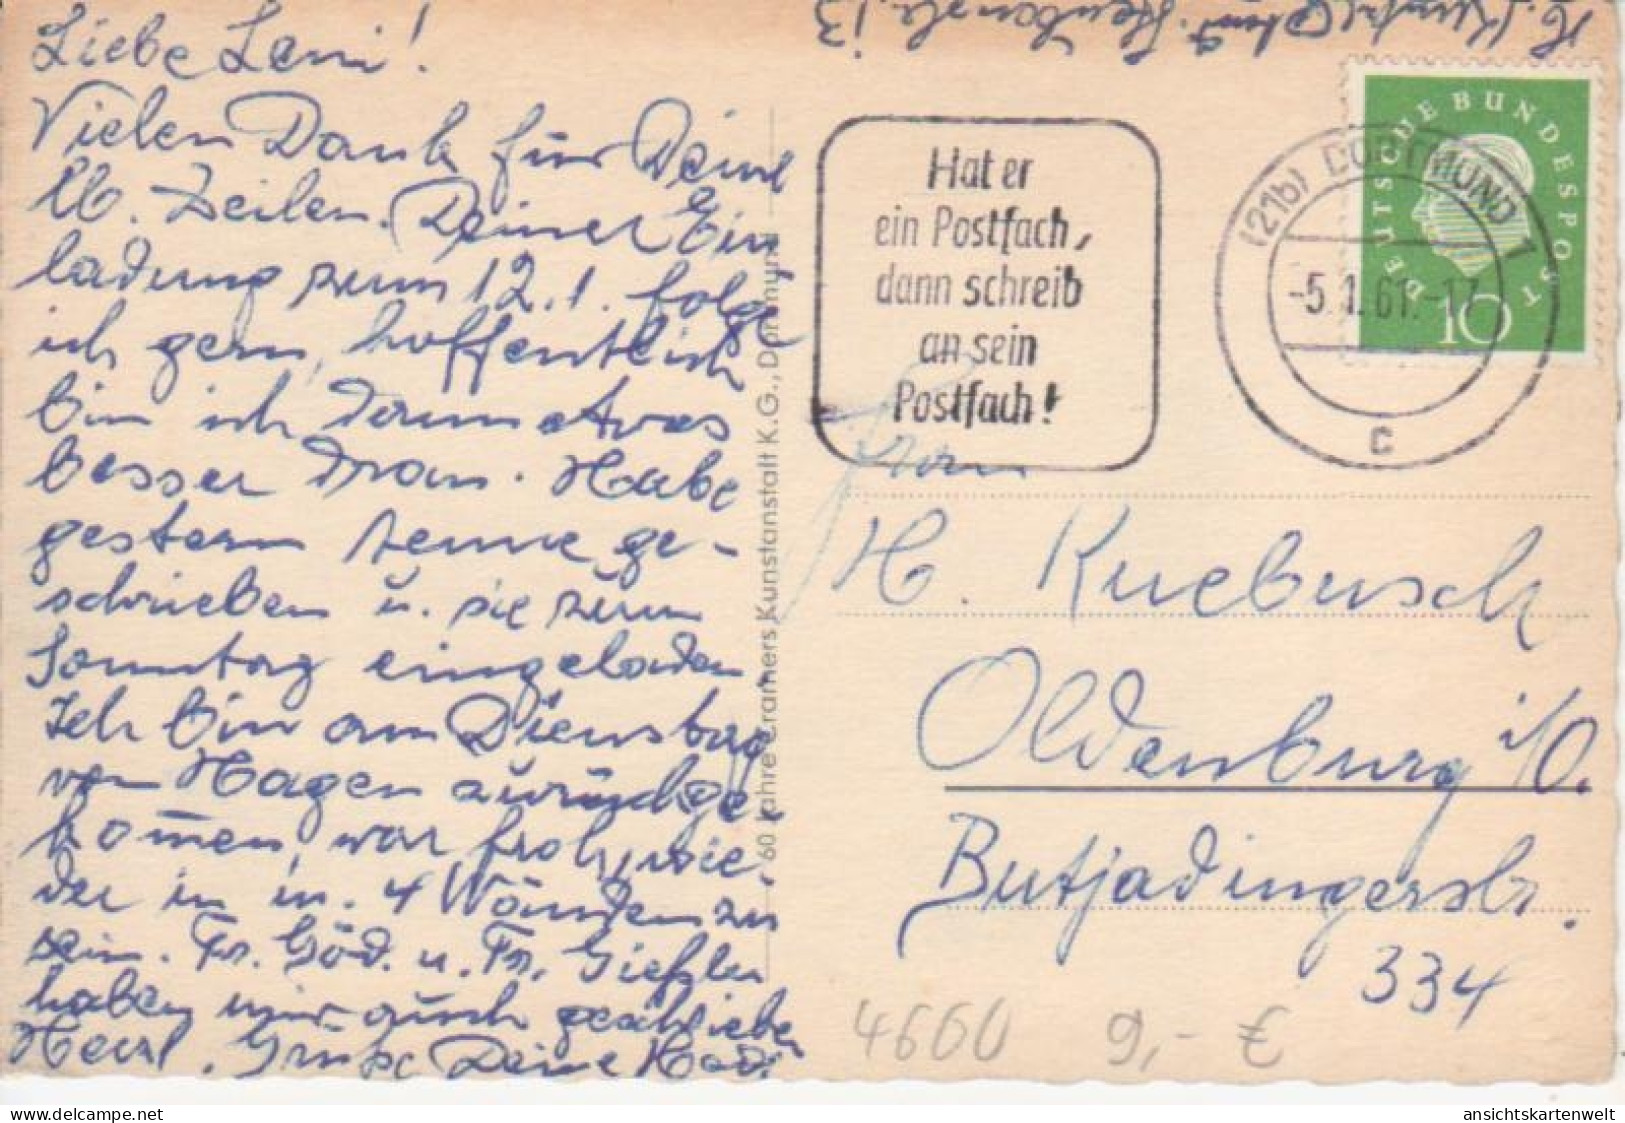 Liebe Leni!
Vielen Dank für Deine
lb. Zeilen. Deiner Ein
ladung zum 12.1. folge
ich gern, hoffentlich
bin ich dann etwas
besser dran. Habe
gestern Aenne ge-
schrieben u. sie zum
Sonntag eingeladen
Ich bin am Dienstag
von Hagen zurückge-
kommen, war froh, wie-
der in m. 4 Wänden zu
sein. Fr. Göd. u. Fr.
haben mir auch geschrieben
Herzl. Grüße Deine
60 Jahre Cramers Kunstanstalt K.G., Dortmund
Hat er
ein Postfach,
dann schreib
an sein
Postfach!
(21b) DORTMUND 1
-5.1.61.-17
c
DEUTSCHE BUNDESPOST
10
H. 13
Frau
H. Kuebusch
Oldenburg i/O.
Butjadingerstr.
334
4600 9,- €
ansichtskartenwelt